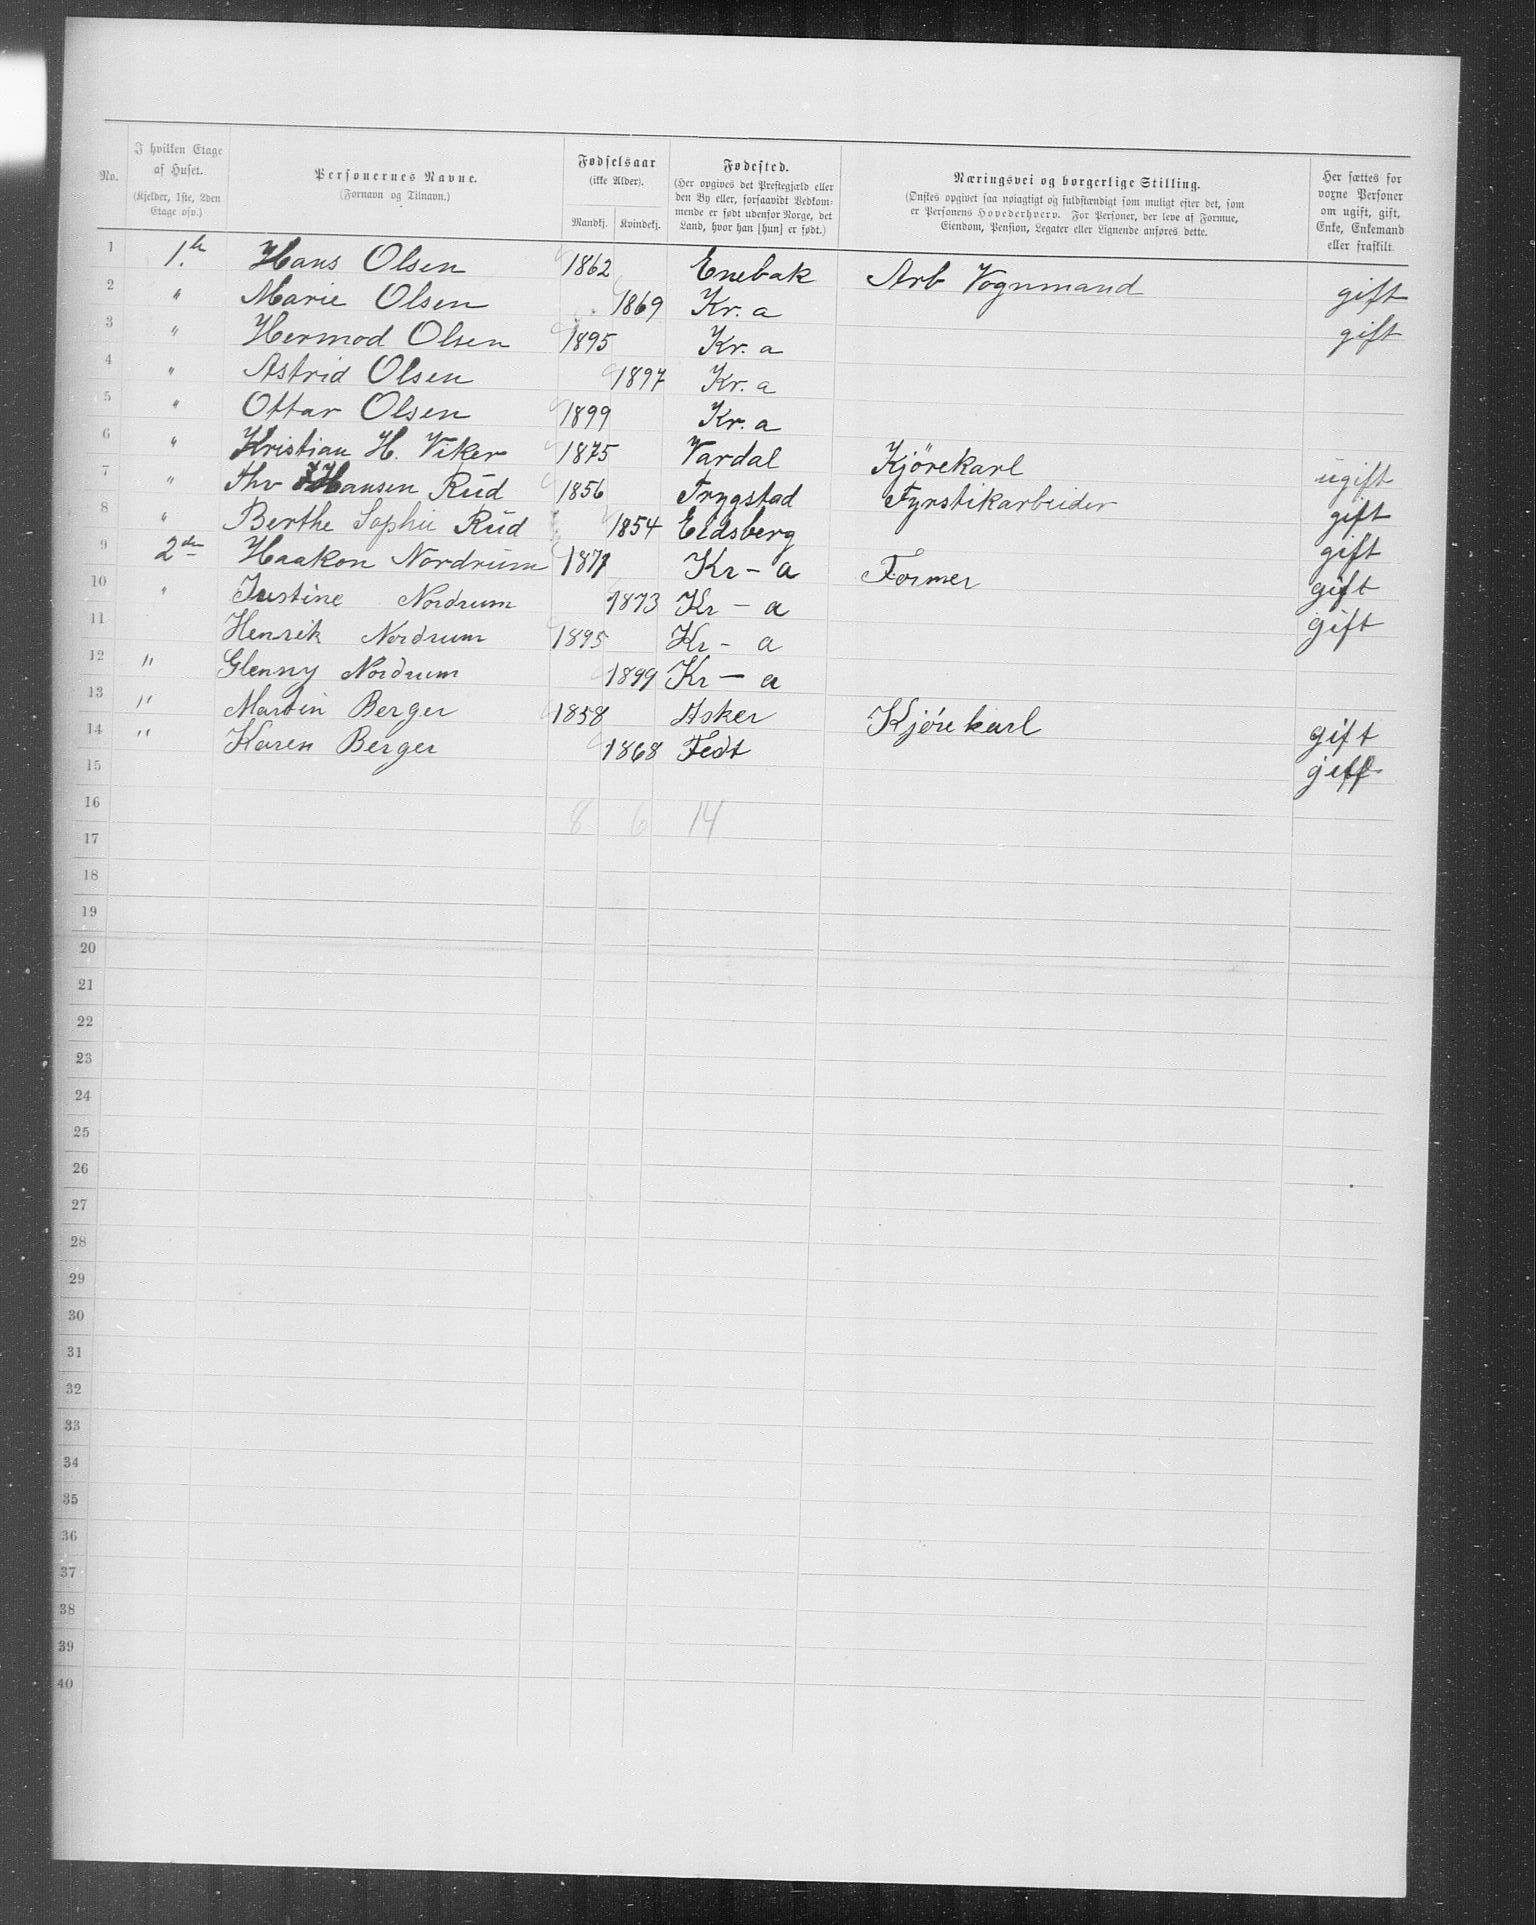 No.	I hvilken Etage af Huset. (Kjelder, 1ste, 2den Etage osv.)	Personernes Navne. (Fornavn og Tilnavn.)	Fødselsaar (ikke Alder). Mandkj. Kvindekj.	Fødested. (Her opgives det Prestegjæld eller den By eller, forsaavidt Vedkommende er født udenfor Norge, det Land, hvor han [hun] er født.)	Næringsvei og borgerlige Stilling. (Ønskes opgivet saa nøiagtigt og fuldstændigt som muligt efter det, som er Personens Hovederhverv. For Personer, der leve af Formue, Eiendom, Pension, Legater eller Lignende anføres dette.)	Her sættes for voxne Personer om ugift, gift, Enke, Enkemand eller fraskilt.
1 1. Hans Olsen 1862 Enebak Arb Vognmand gift
2 " Marie Olsen 1869 Kr. a gift
3 " Hermod Olsen 1895 Kr. a
4 " Astrid Olsen 1897 Kr. a
5 " Ottar Olsen 1899 Kr. a
6 " Kristian H. Viker 1875 Vardal Kjörekarl ugift
7 " Thv Hansen Rud 1856 Trygstad Fyrstikarbeider gift
8 " Berthe Sophie Rud 1854 Eidsberg gift
9 2de Haakon Nordrum 1871 Kr - a Former gift
10 " Justine Nordrum 1873 Kr - a gift
11 Henrik Nordrum 1895 Kr - a
12 " Glenny Nordrum 1899 Kr - a
13 " Martin Berger 1858 Asker Kjörekarl gift
14 " Karen Berger 1868 Fedt gift
15
16 8 6 14
17
18
19
20
21
22
23
24
25
26
27
28
29
30
31
32
33
34
35
36
37
38
39
40